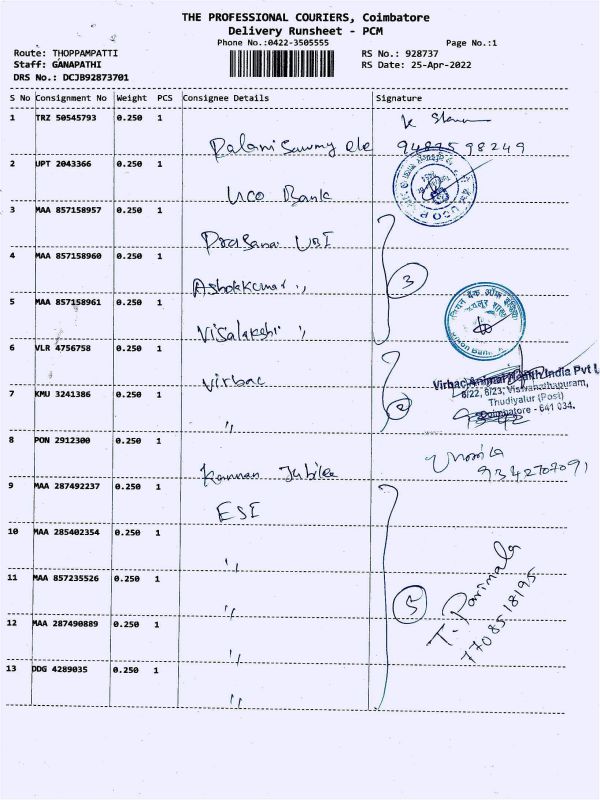 THE PROFESSIONAL COURIERS, Coimbatore
Delivery Runsheet - PCM
Phone No.:0422-3505555 Page No.:1
Route: THOPPAMPATTI RS No.: 928737
Staff: GANAPATHI RS Date: 25-Apr-2022
DRS No.: DCJB92873701
S No Consignment No Weight PCS Consignee Details Signature
1 TRZ 50545793 0.250 1
Palanisawmy ele 9489598249
2 UPT 2043366 0.250 1
UCO Bank
3 MAA 857158957 0.250 1
Prasana UBI
4 MAA 857158960 0.250 1
Ashokkumar ,, 3
5 MAA 857158961 0.250 1
Visalakshi ,,
6 VLR 4756758 0.250 1
Virbac
Virbac Animal Health India Pvt L
7 KMU 3241386 0.250 1
6/22, 6/23, Viswanathapuram,
Thudiyalur (Post)
,, 2 Coimbatore - 641 034.
8 PON 2912300 0.250 1
Kannan Jubilee 9342707091
9 MAA 287492237 0.250 1
ESI
10 MAA 285402354 0.250 1
,,
11 MAA 857235526 0.250 1
,, 5 T. Parimala
7708518195
12 MAA 287490889 0.250 1
,,
13 DDG 4289035 0.250 1
,,